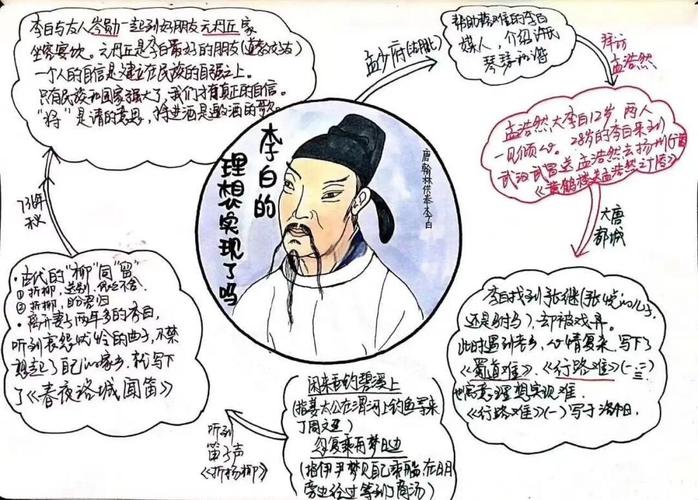 李白的
理想实现了吗
唐翰林供奉李白
孟少府(湖北)
帮助落难的李白
媒人,介绍许氏
琴瑟和谐
拜访
孟浩然
孟浩然大李白12岁,两人
一见倾心。28岁的李白来到
武汉武昌送孟浩然去扬州
《黄鹤楼送孟浩然之广陵》
大唐
都城
李白找到张
还是驸马),却被戏弄。
此时遇到老乡,心情复杂,写下了
《蜀道难》、《行路难》(一、二、三)
也寓意理想实现难
《行路难》(一)写于洛阳。
闲来垂钓碧溪上
(指姜太公在渭河上钓鱼等来
了周文王)
忽复乘舟梦日边
(指伊尹梦见自己乘船,在日月
旁边经过等到了商汤)
听到
笛子声
《折杨柳》
·古代的“柳”同“留”
①折柳,送别,依依不舍。
②折柳,盼君归
·离开妻子两年多的李白,
听到哀怨忧伤的曲子,不禁
想起了自己的家乡,就写下
了《春夜洛城闻笛》
736年
秋
李白与友人岑勋一起到好朋友元丹丘家
坐客宴饮。元丹丘是李白最好的朋友
一个人的自信是建立在民族的自强之上。
只有民族和国家强大了,我们才有真正的自信。
“将”是请的意思,将进酒是邀酒的歌。